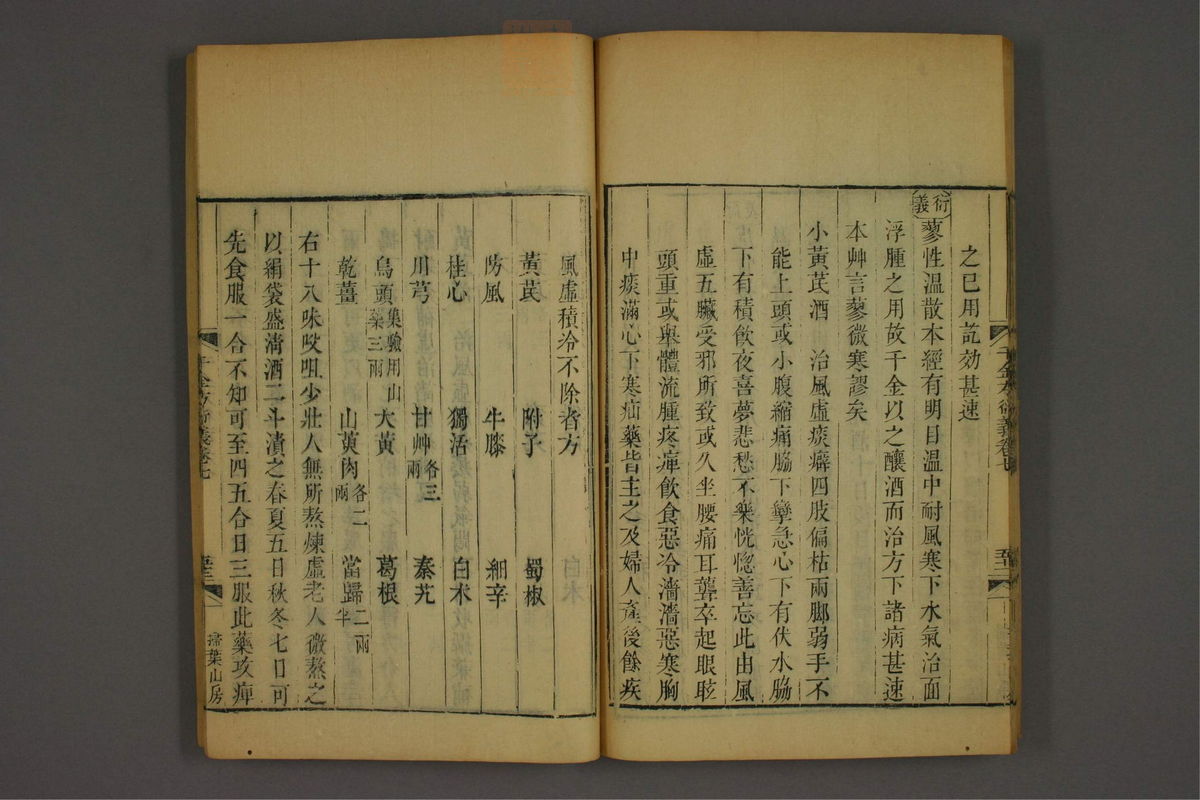 之已用訖効甚速
衍義
蓼性溫散本經有明目溫中耐風寒下水氣治面
浮腫之用故千金以之釀酒而治方下諸病甚速
本艸言蓼微寒謬矣
小黃芪酒 治風虛痰癖四肢偏枯兩脚弱手不
能上頭或小腹縮痛脇下攣急心下有伏水脇
下有積飲夜喜夢悲愁不樂恍惚善忘此由風
虛五臟受邪所致或久坐腰痛耳聾卒起眼眩
頭重或舉體流腫疼痺飲食惡冷濇濇惡寒胸
中痰滿心下寒疝藥皆主之及婦人產後餘疾
風虛積冷不除者方
黃芪 附子 蜀椒
防風 牛膝 細辛
桂心 獨活 白朮
川芎 甘艸各三兩 秦艽
烏頭集驗用山藥三兩 大黃 葛根
乾薑 山萸肉各二兩 當歸二兩半
右十八味㕮咀少壯人無所熬煉虛老人微熬之
以絹袋盛清酒二斗漬之春夏五日秋冬七日可
先食服一合不知可至四五合日三服此藥攻痺
千金方衍義卷七
掃葉山房